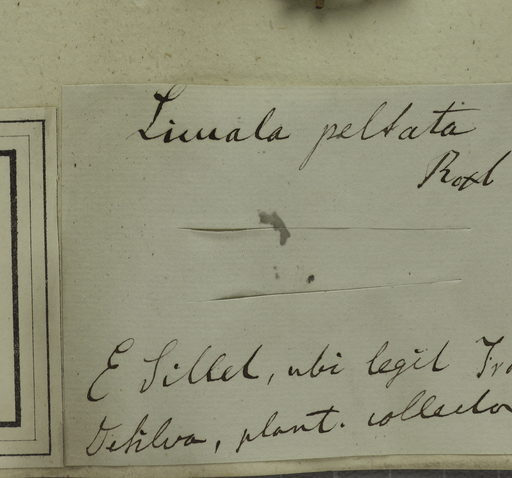 Linuala peltata
Roxb
E Sillet, ubi legit Fra
Desilva, plant. collector